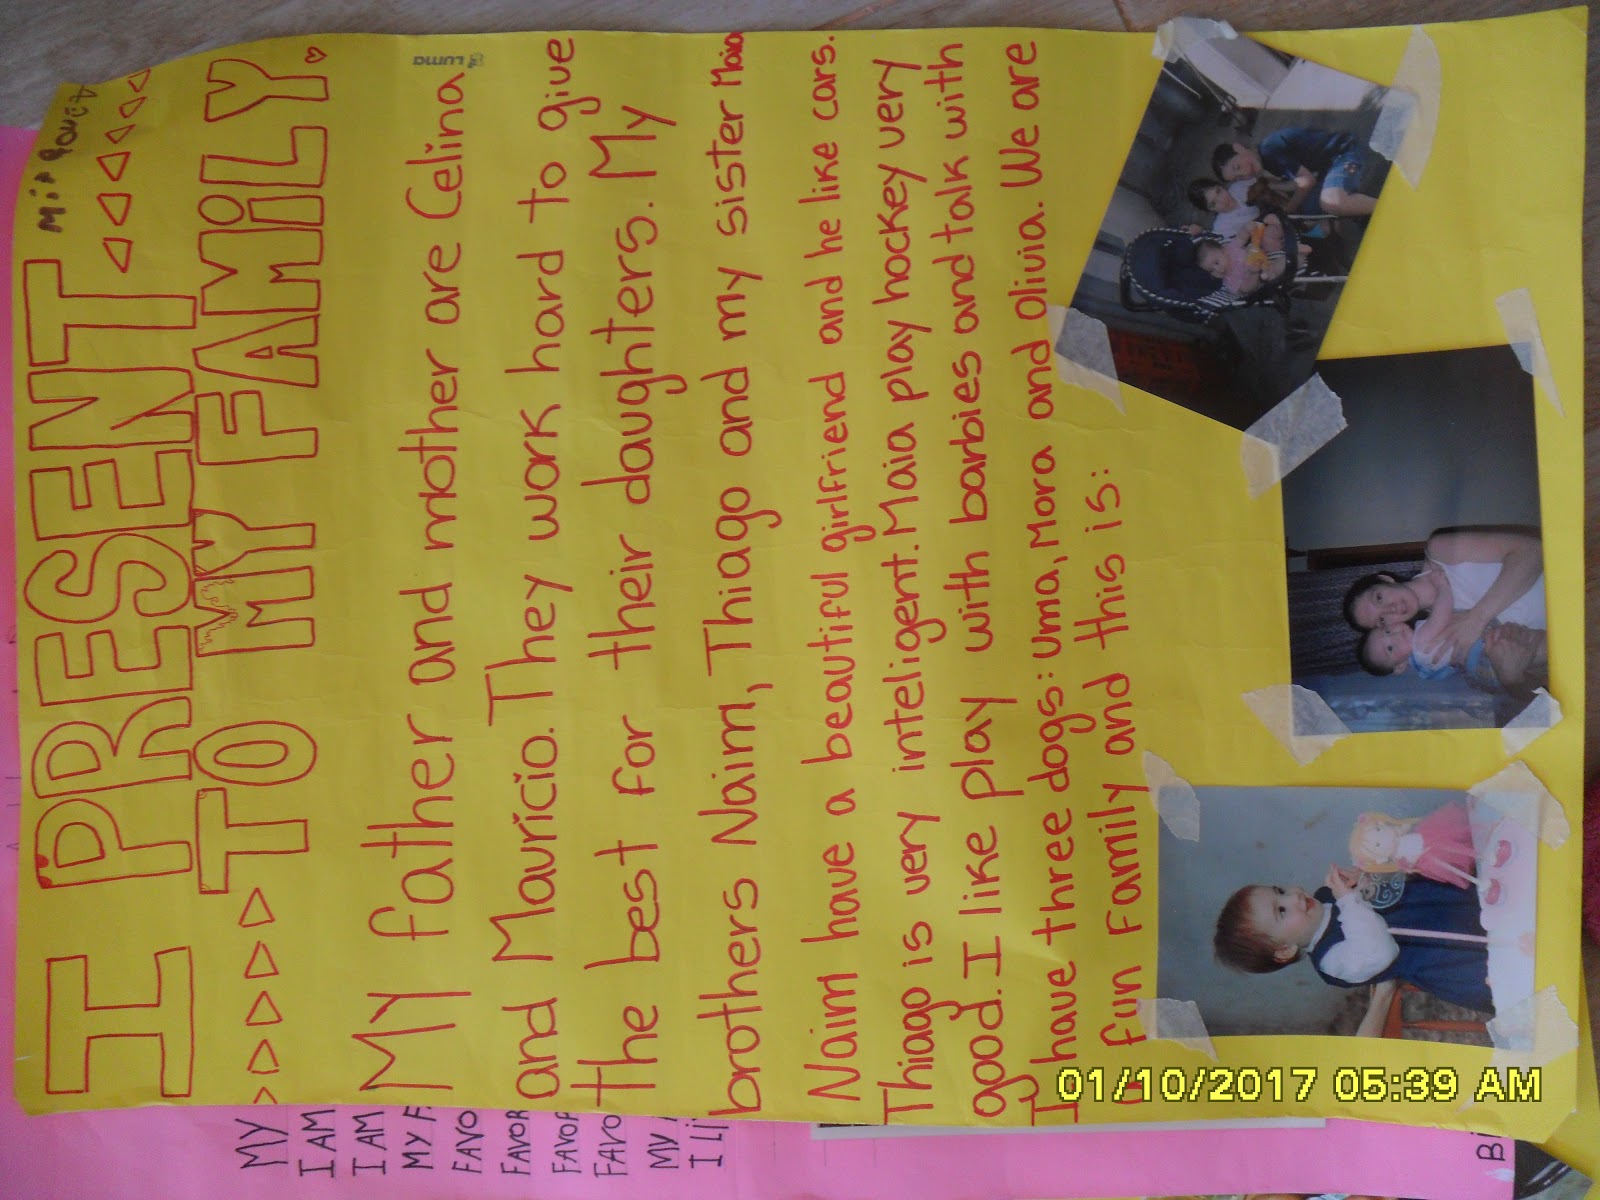 I PRESENT
TO MY FAMILY
LUMA
My father and mother are Celina
and Mauricio. They work hard to give
the best for their daughters. My
brothers Naim, Thiago and my sister Maia
Naim have a beautiful girlfriend and he like cars.
Thiago is very inteligent. Maia play hockey very
good. I like play with barbies and talk with
I have three dogs: Uma, Mora and Olivia. We are
a fun Family and this is:
MY
I AM
I AM
MY F
FAVO
FAVOR
FAVOR
FAVO
MY
I LI
01/10/2017 05:39 AM